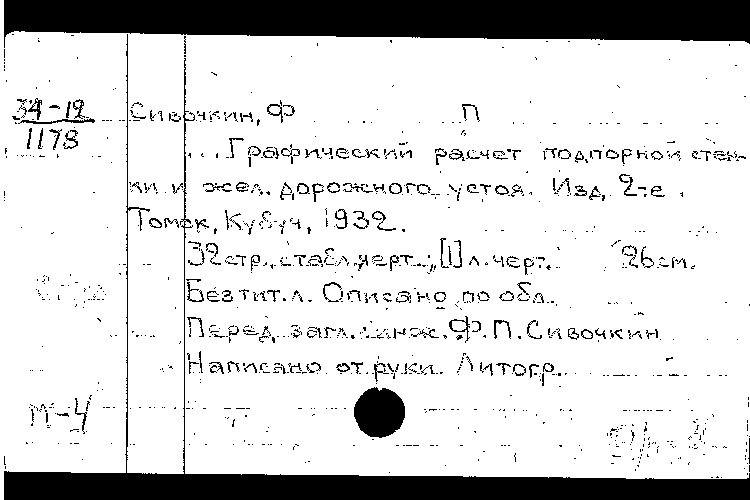 34-12
1178
Сивочкин, Ф П
...Графический расчет подпорной стен-
ки и жел. дорожного устоя. Изд. 2-е.
Томск, Кубуч, 1932.
32 стр., с табл. черт.; [1] л. черт. 26 см.
Без тит. л. Описано по обл.
Перед загл.: инж. Ф. П. Сивочкин
Написано от руки. Литогр.
м-4